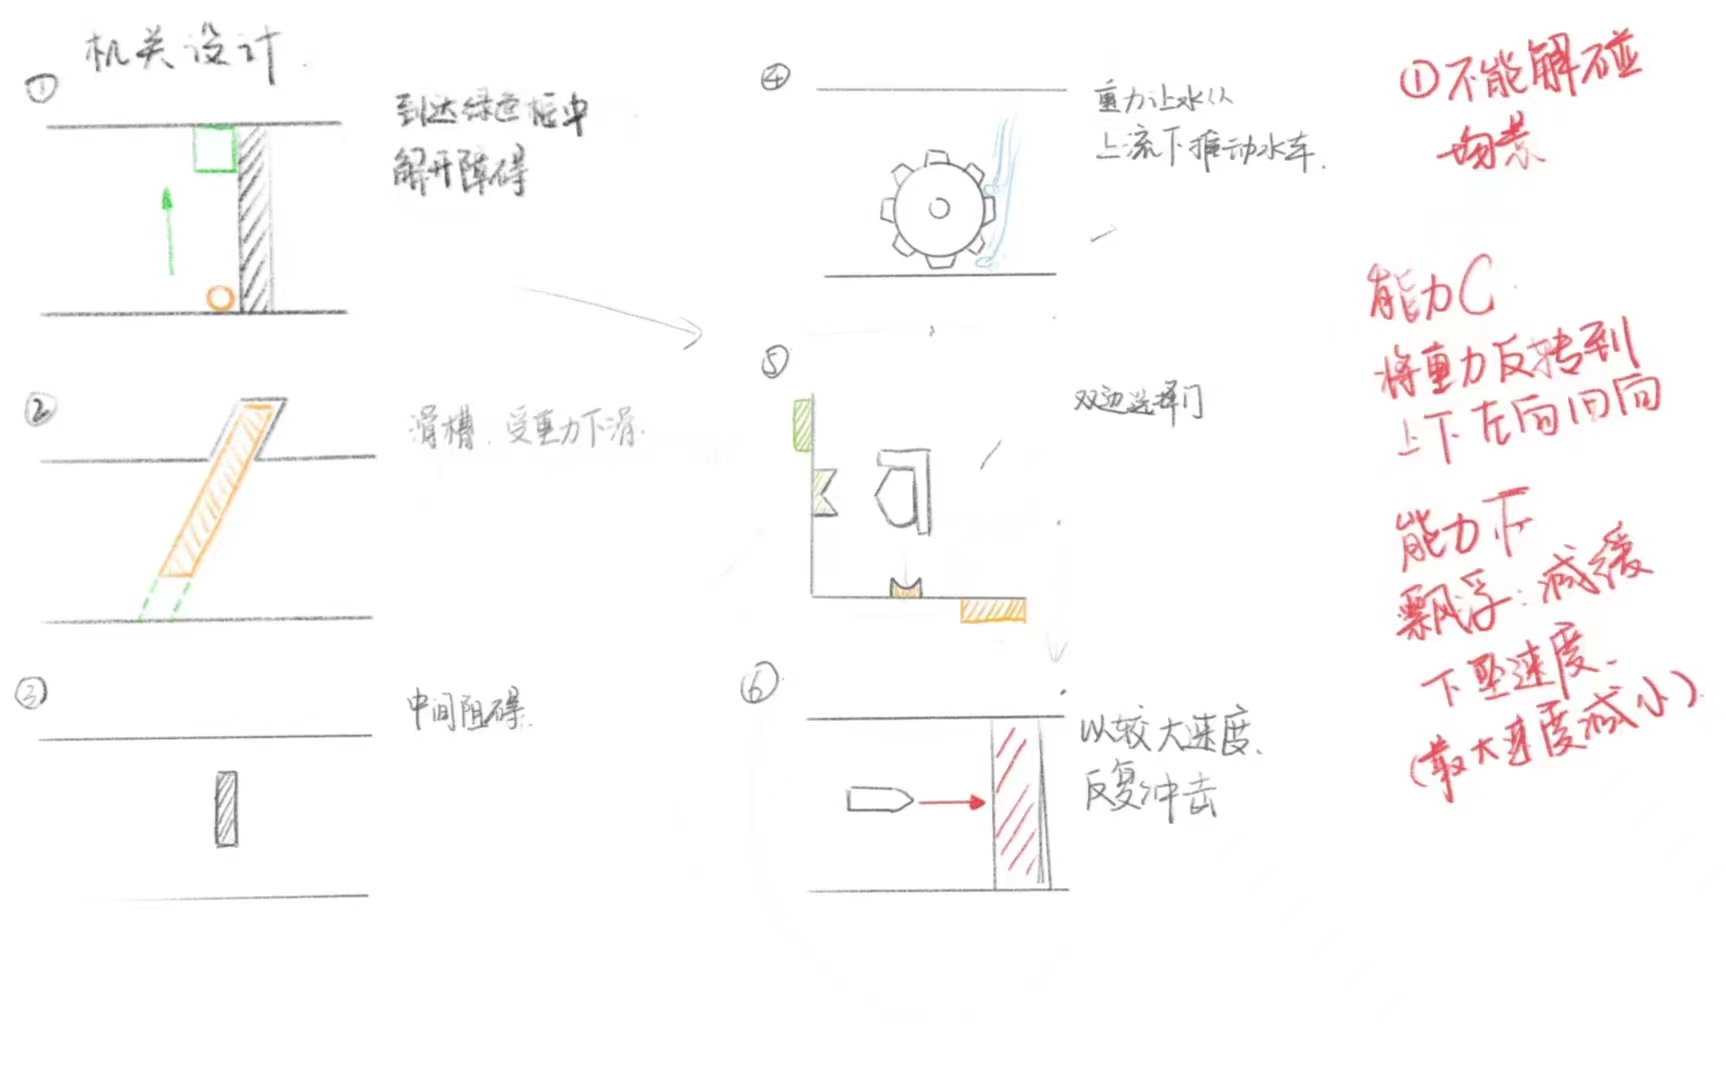 机关设计
①
到达绿色框中
解开障碍
②
滑槽.受重力下滑.
③
中间阻碍.
④
重力让水从
上流下推动水车.
⑤
双边选择门
⑥
以较大速度.
反复冲击
①不能解碰
场景
能力C
将重力反转到
上下左向旧向
能力下
飘浮:减缓
下坠速度.
(最大速度减小)